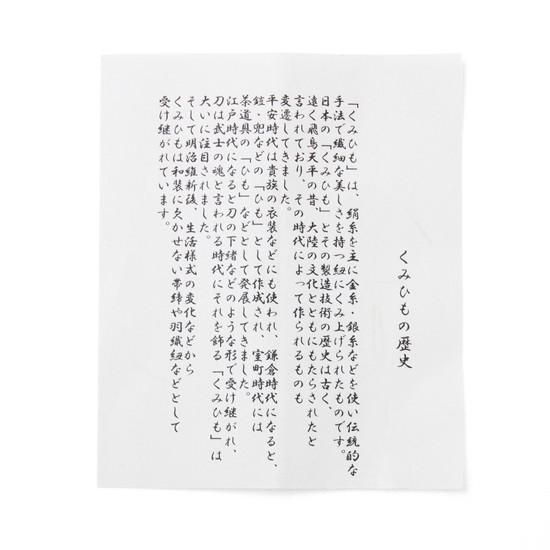 くみひもの歴史
「くみひも」は、絹糸を主に金糸・銀糸などを使い伝統的な
手法で繊細な美しさを持つ紐にくみ上げられたものです。
日本の「くみひも」とその製造技術の歴史は古く、
遠く飛鳥天平の昔、大陸の文化とともにもたらされたと
言われており、その時代によって作られるものも
変遷してきました。
平安時代は貴族の衣装などにも使われ、鎌倉時代になると、
鎧・兜などの「ひも」として作成され、室町時代には
茶道具の「ひも」などとして発展してきました。
江戸時代になると刀の下緒などのような形で受け継がれ、
刀は武士の魂と言われる時代にそれを飾る「くみひも」は
大いに注目されました。
そして明治維新後、生活様式の変化などから
くみひもは和装に欠かせない帯締や羽織紐などとして
受け継がれています。